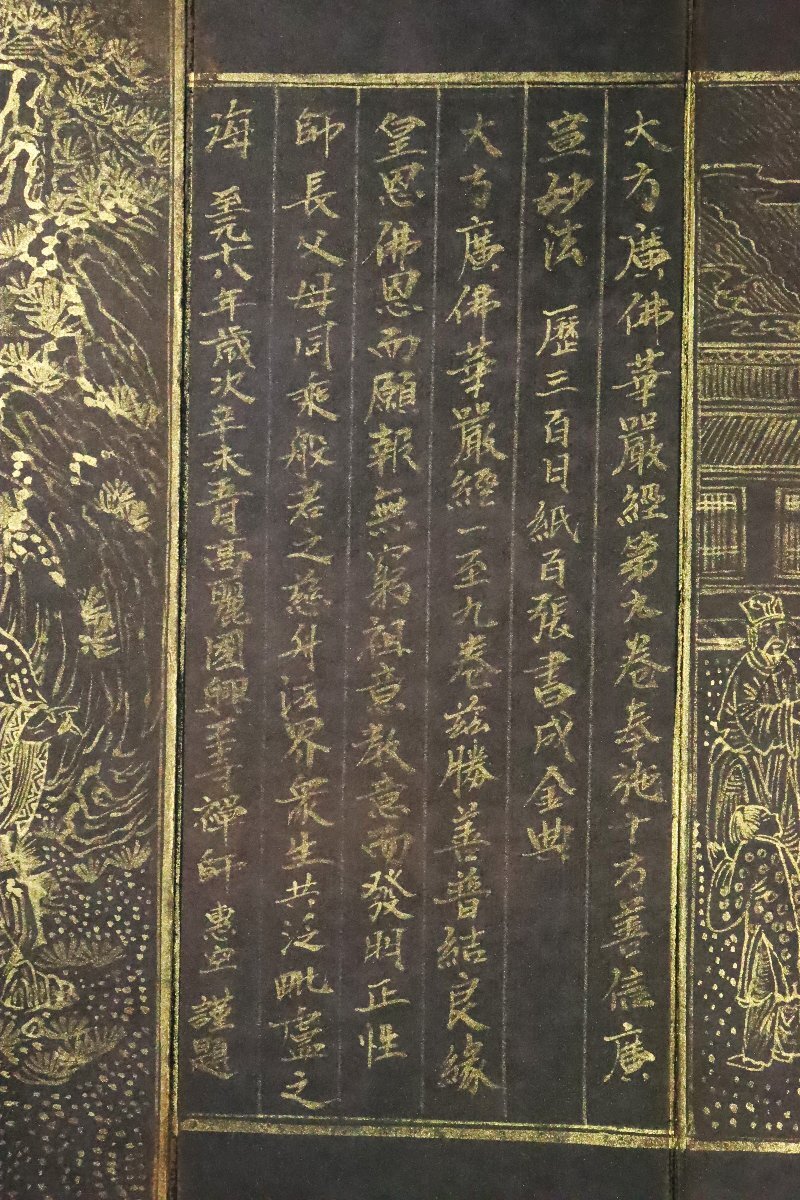 大方廣佛華嚴經第九卷奉施十方善信廣
宣妙法 歷三百日紙百張書成金典
大方廣佛華嚴經一至九卷茲勝善普結良緣
皇恩佛恩而願報無窮祖意教意而發明正性
師長父母同乘般若之慈舟法界眾生共泛毗盧之
海 至元十八年歲次辛未 高麗國興王寺禪師惠 謹題